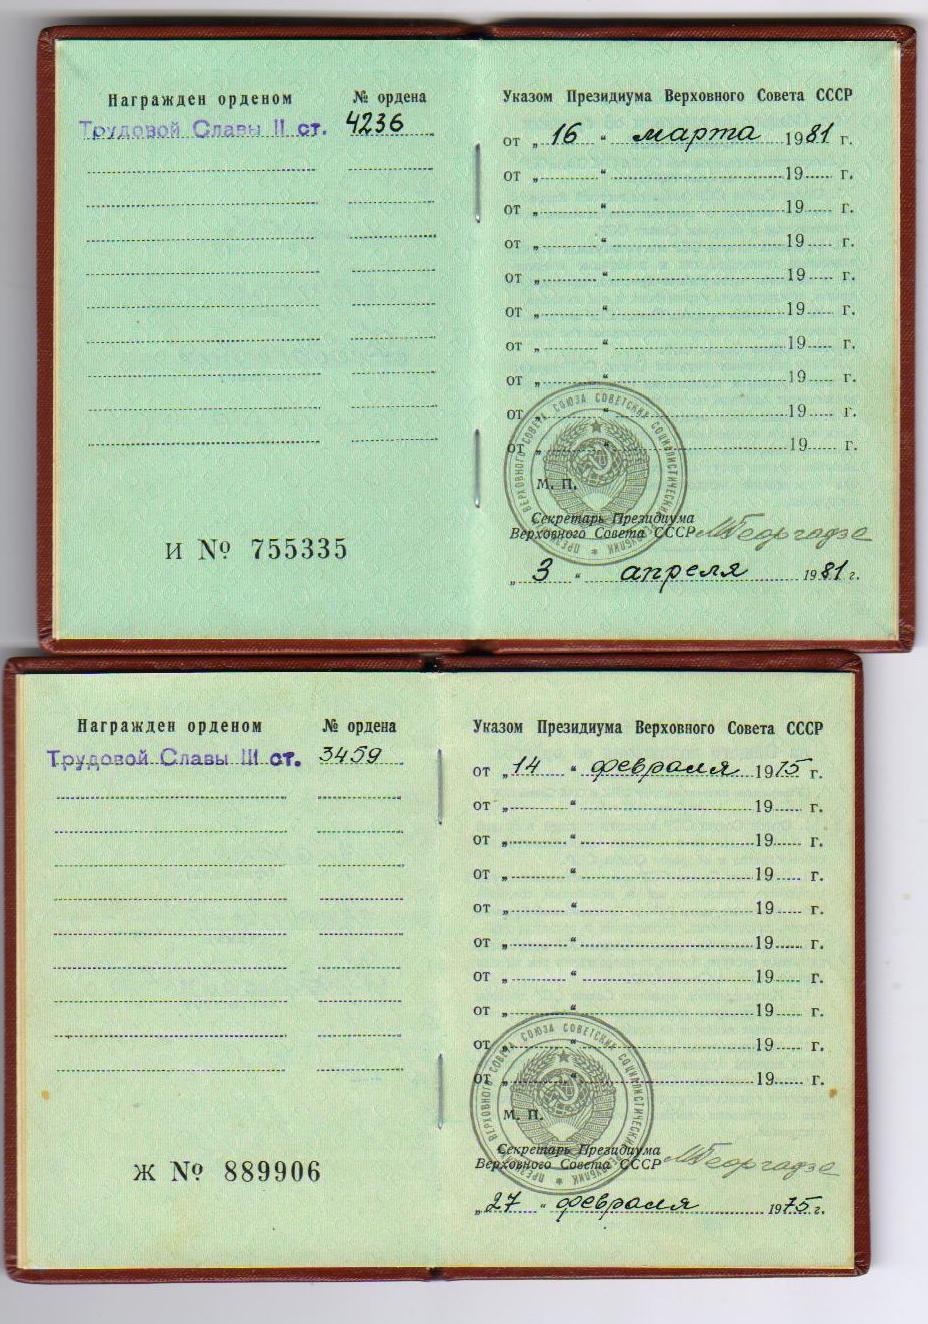 Награжден орденом № ордена
Трудовой Славы II ст. 4236
И № 755335
Указом Президиума Верховного Совета СССР
от „16“ марта 1981 г.
от „ “ 19 г.
от „ “ 19 г.
от „ “ 19 г.
от „ “ 19 г.
от „ “ 19 г.
от „ “ 19 г.
от „ “ 19 г.
от „ “ 19 г.
от „ “ 19 г.
ПРЕЗИДИУМ ВЕРХОВНОГО СОВЕТА СОЮЗА СОВЕТСКИХ СОЦИАЛИСТИЧЕСКИХ РЕСПУБЛИК
М. П.
Секретарь Президиума
Верховного Совета СССР МГеоргадзе
„3“ апреля 1981 г.
Награжден орденом № ордена
Трудовой Славы III ст. 3459
Ж № 889906
Указом Президиума Верховного Совета СССР
от „14“ февраля 1975 г.
от „ “ 19 г.
от „ “ 19 г.
от „ “ 19 г.
от „ “ 19 г.
от „ “ 19 г.
от „ “ 19 г.
от „ “ 19 г.
от „ “ 19 г.
от „ “ 19 г.
ПРЕЗИДИУМ ВЕРХОВНОГО СОВЕТА СОЮЗА СОВЕТСКИХ СОЦИАЛИСТИЧЕСКИХ РЕСПУБЛИК
М. П.
Секретарь Президиума
Верховного Совета СССР МГеоргадзе
„27“ февраля 1975 г.